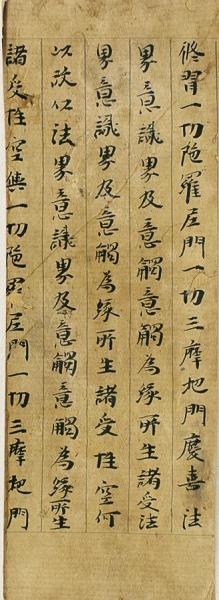 修習一切陁羅尼門一切三摩地門慶喜法
界意識界及意觸意觸為緣所生諸受法
界意識界及意觸為緣所生諸受性空何
以故以法界意識界及意觸意觸為緣所生
諸受性空與一切陁羅尼門一切三摩地門